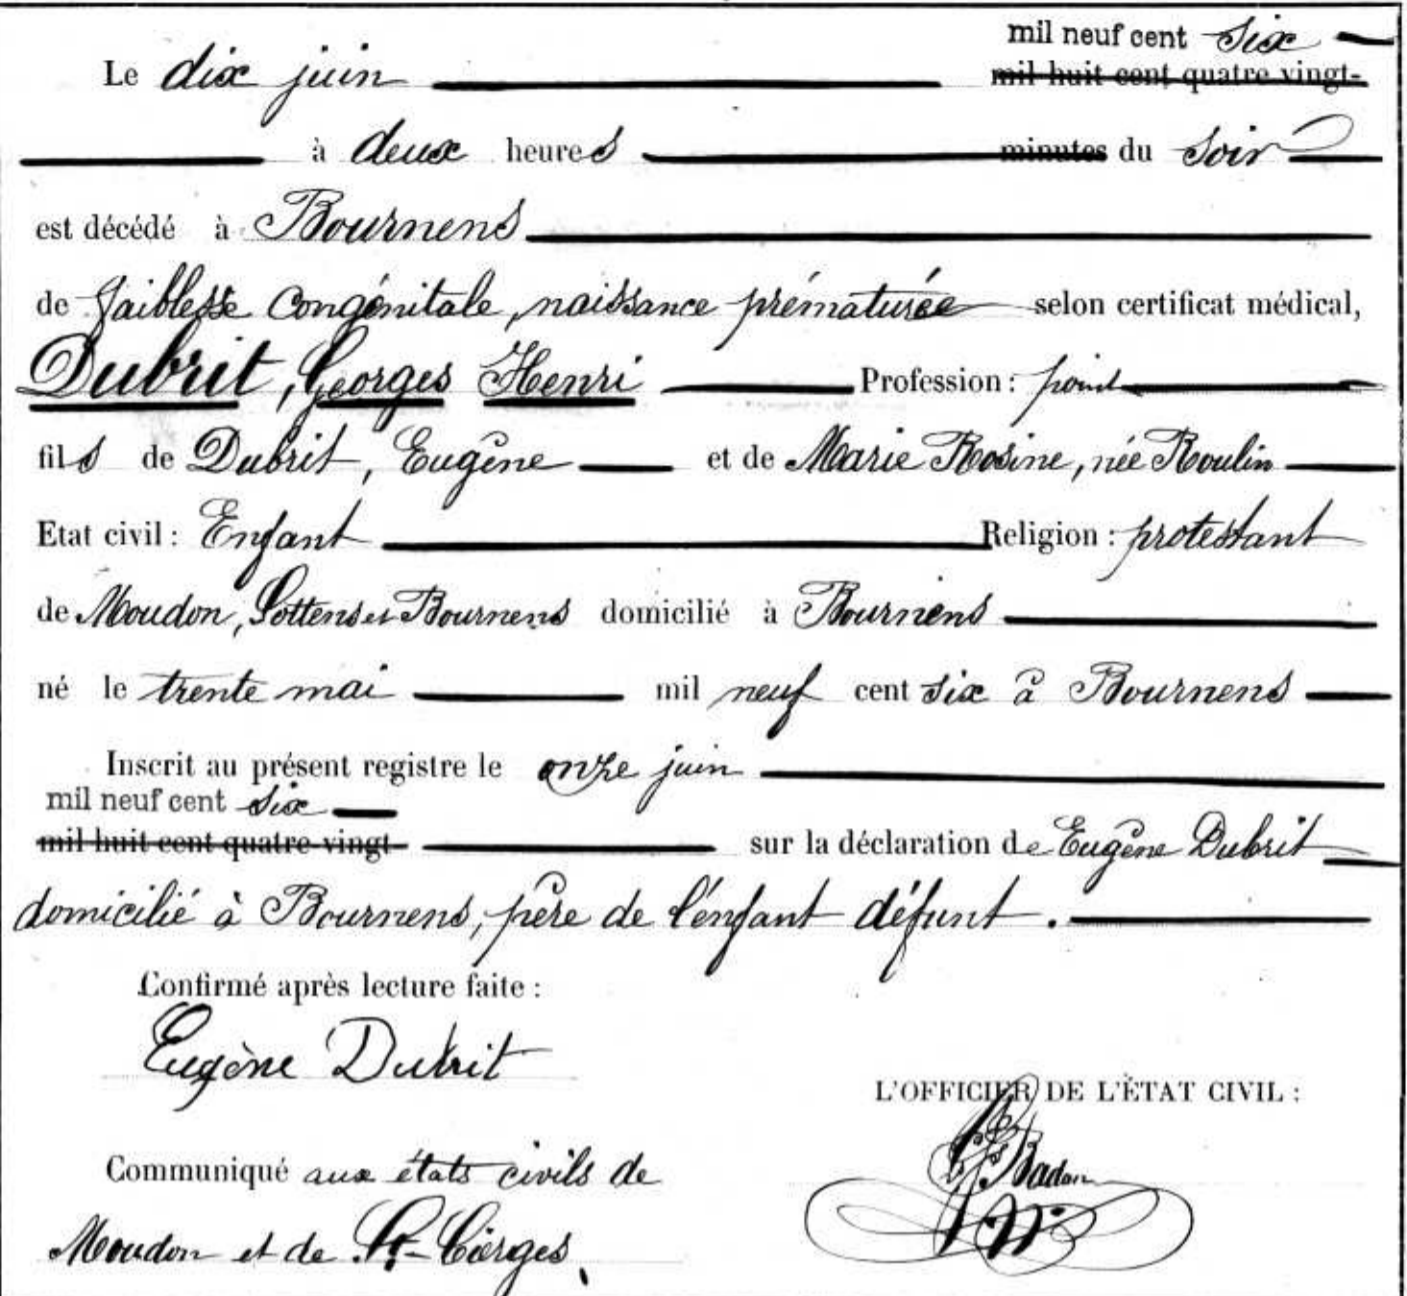 mil neuf cent six
Le dix juin mil huit cent quatre-vingt-
à deux heures minutes du soir
est décédé à Bournens
de faiblesse congénitale, naissance prématurée selon certificat médical,
Dubrit, Georges Henri Profession: point
fils de Dubrit, Eugène et de Marie Rosine, née Roulin
Etat civil: Enfant Religion: protestant
de Moudon, Sottens et Bournens domicilié à Bournens
né le trente mai mil neuf cent six à Bournens
Inscrit au présent registre le onze juin
mil neuf cent six
mil huit cent quatre-vingt sur la déclaration de Eugène Dubrit
domicilié à Bournens, père de l'enfant défunt.
Confirmé après lecture faite:
Eugène Dubrit
L'OFFICIER DE L'ÉTAT CIVIL:
Communiqué aux états civils de
Moudon et de St-Cierges.